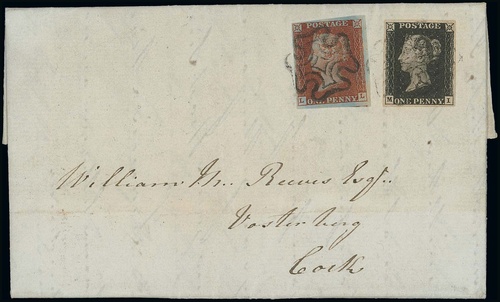 POSTAGE
ONE PENNY
L L
POSTAGE
ONE PENNY
M I
William M. Reeves Esqr.
Vosterberg
Cork